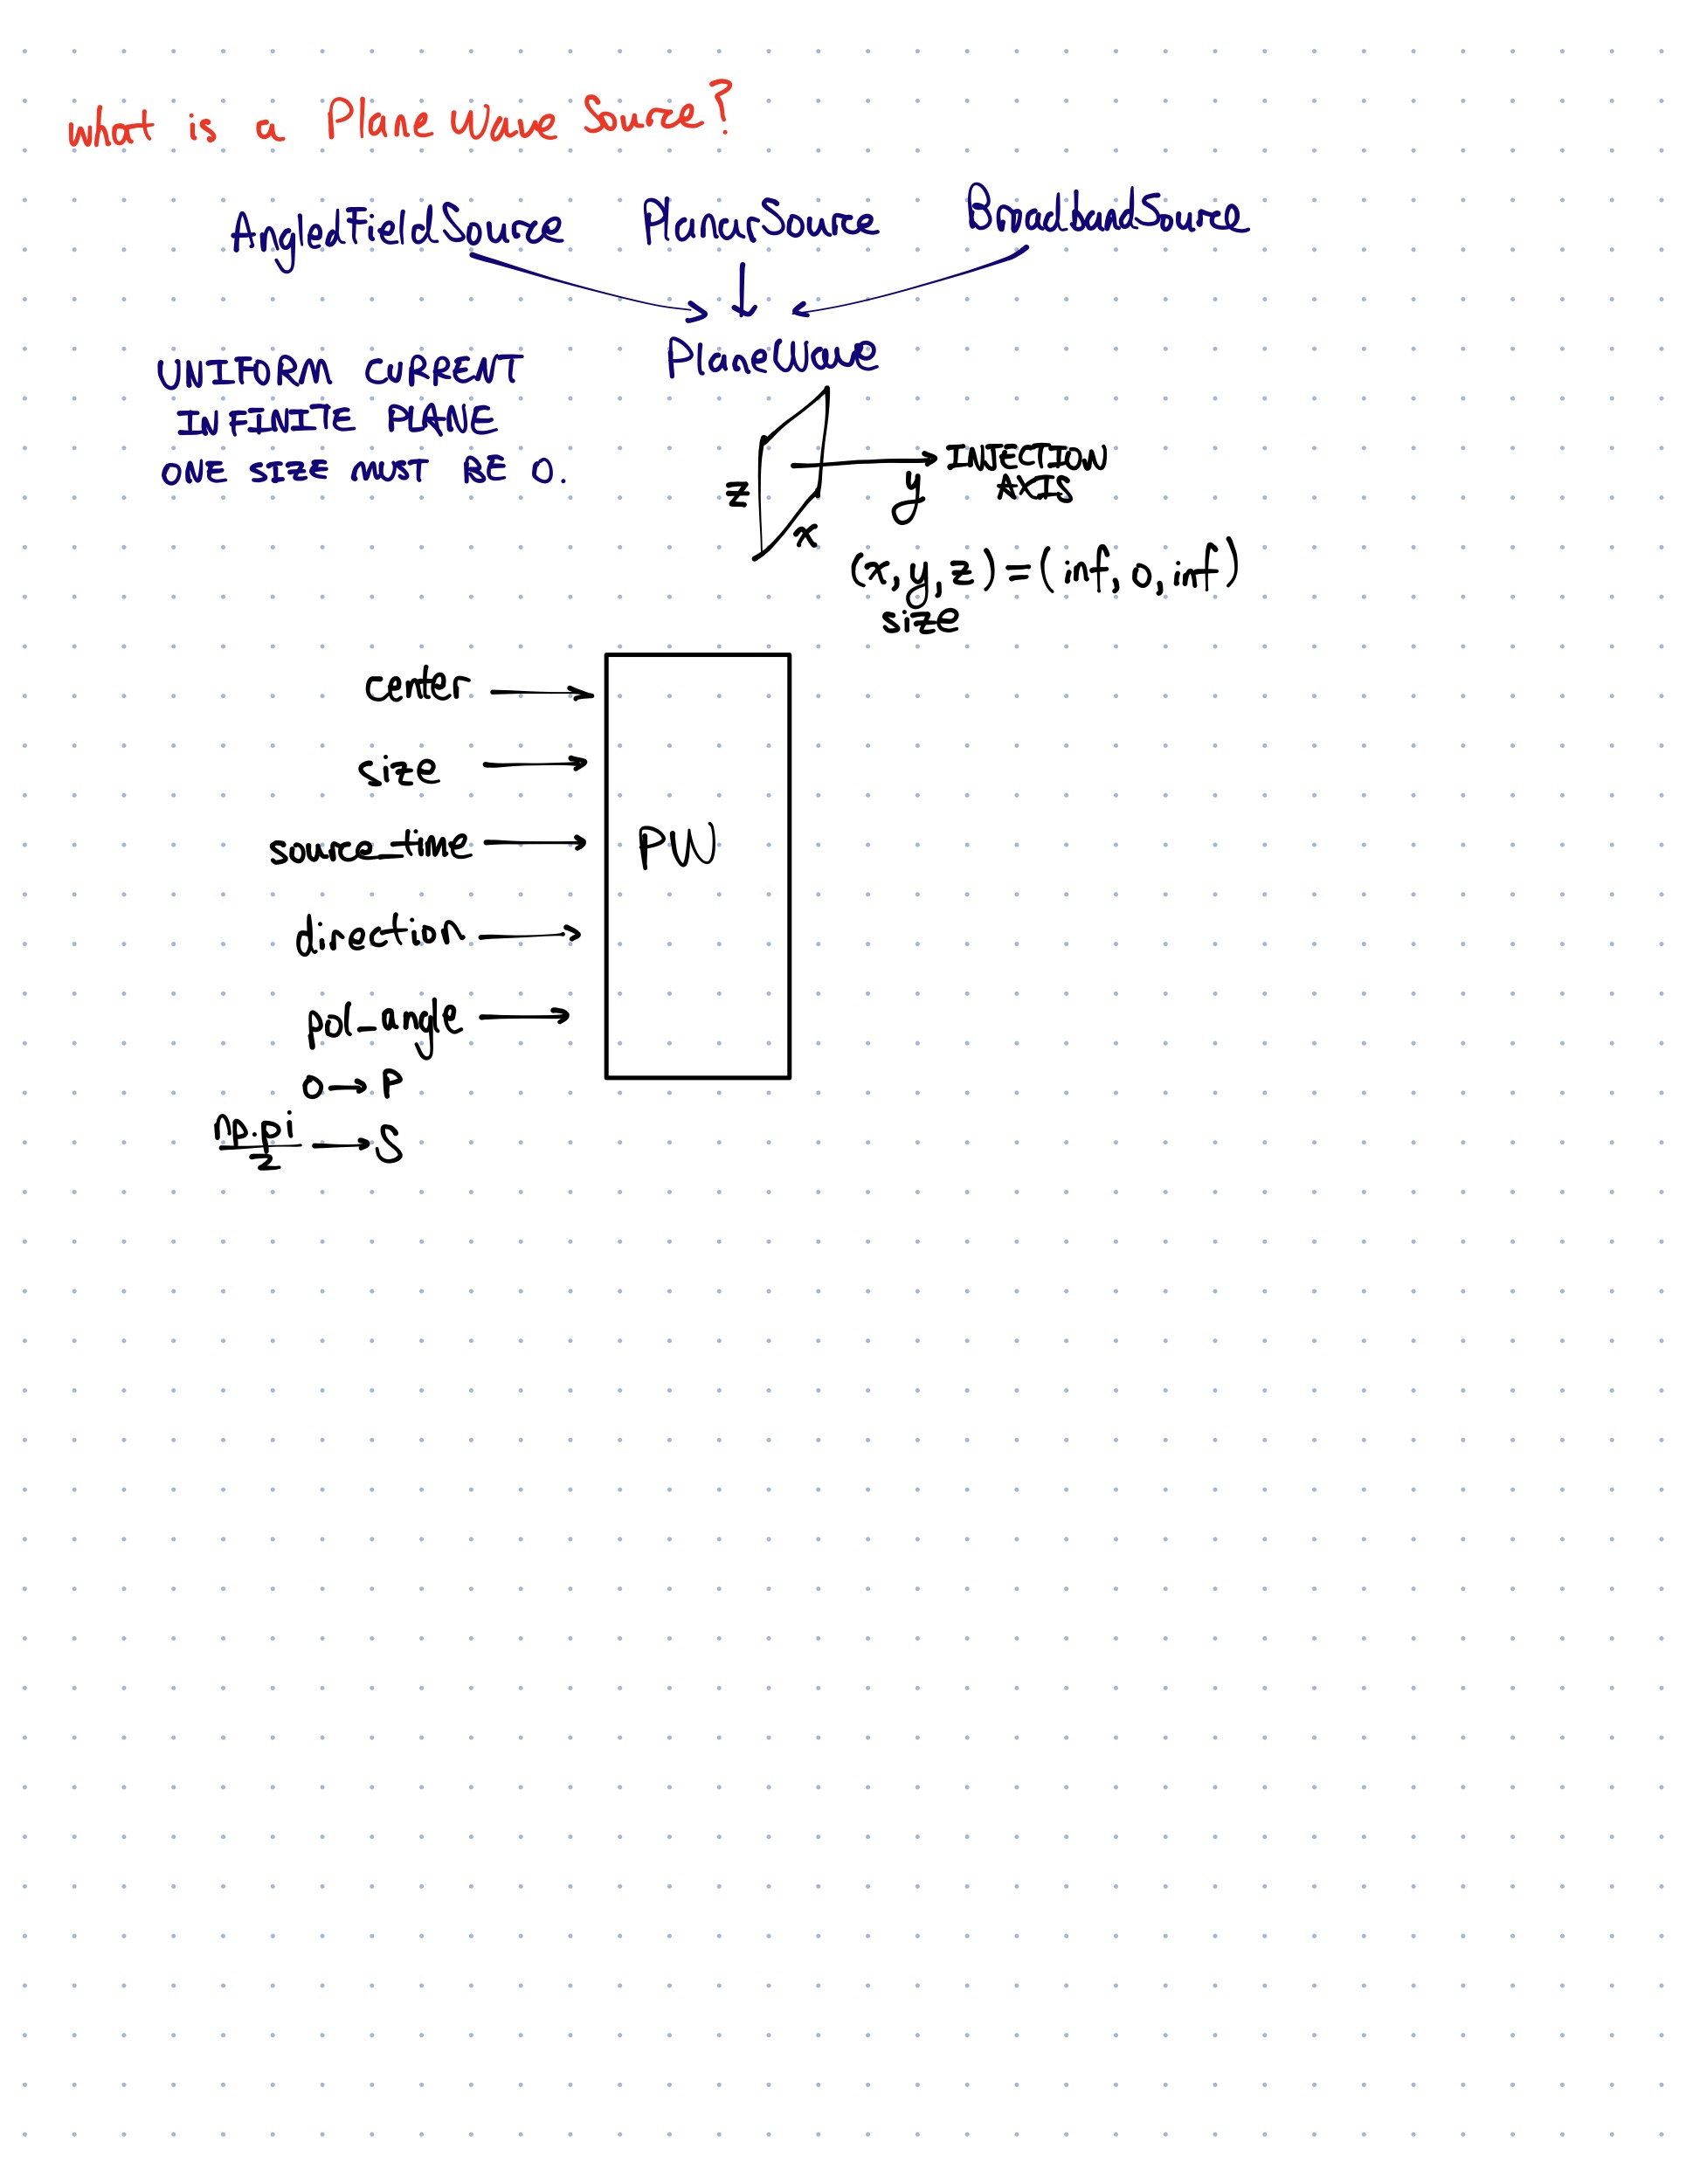 what is a Plane Wave Source?
AngledFieldSource PlanarSource BroadbandSource
PlaneWave
UNIFORM CURRENT
INFINITE PLANE
ONE SIZE MUST BE 0.
INJECTION
AXIS
z
y
x
(x, y, z) = (inf, 0, inf)
size
center
size
source_time
PW
direction
pol_angle
0 → P
np.pi
2
→ S